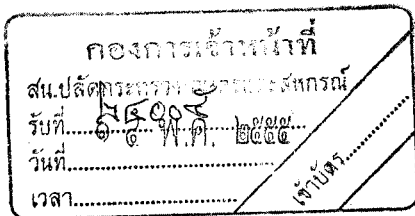 กองการเจ้าหน้าที่
สน.ปลัดกระทรวงเกษตรและสหกรณ์
รับที่
๑๕ พ.ค. ๒๕๕๕
วันที่
เวลา
เข้าบัตร